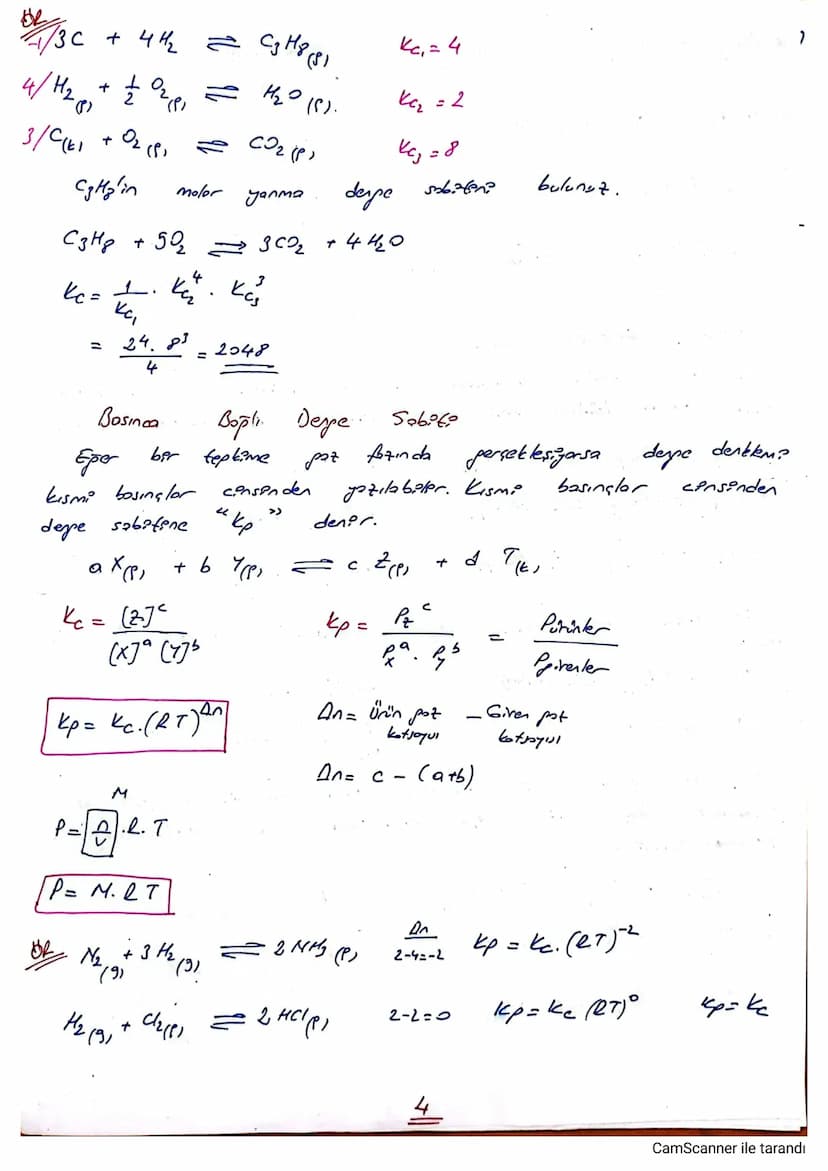 ÖR
-1/ 3C + 4H₂ ⇌ C₃H₈(g) Kc₁ = 4
4/ H₂(g) + 1/2 O₂(g) ⇌ H₂O(g). Kc₂ = 2
3/ C(k) + O₂(g) ⇌ CO₂(g) Kc₃ = 8
C₃H₈'in molar yanma denge sabitini bulunuz.
C₃H₈ + 5O₂ ⇌ 3CO₂ + 4H₂O
Kc = 1/Kc₁ · Kc₂⁴ · Kc₃³
= 2⁴. 8³ / 4 = 2048
Basınca Bağlı Denge Sabiti
Eğer bir tepkime gaz fazında gerçekleşiyorsa denge denklemi
kısmi basınçlar cinsinden yazılabilir. Kısmi basınçlar cinsinden
denge sabitine "Kp" denir.
a X(g) + b Y(g) ⇌ c Z(g) + d T(k)
Kc = [Z]ᶜ / [X]ᵃ [Y]ᵇ Kp = Pzᶜ / Pxᵃ · Pyᵇ = Pürünler / Pgirenler
Kp = Kc.(RT)^Δn Δn = Ürün gaz katsayısı - Giren gaz katsayısı
Δn = c - (a+b)
M
P = n/v .R. T
P = M. RT
ÖR N₂(g) + 3H₂(g) ⇌ 2NH₃(g) Δn 2-4=-2 Kp = Kc. (RT)⁻²
H₂(g) + Cl₂(g) ⇌ 2HCl(g) 2-2=0 Kp = Kc (RT)⁰ Kp = Kc
4
CamScanner ile tarandı